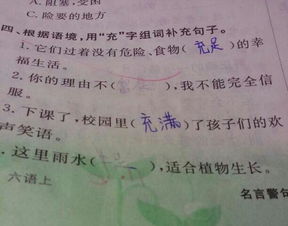 A. 阻塞,受困
C. 险要的地方
四、根据语境,用“充”字组词补充句子。
1. 它们过着没有危险、食物(充足)的幸
福生活。
2. 你的理由不( ),我不能完全信
服。
3. 下课了,校园里(充满)了孩子们的欢
声笑语。
. 这里雨水( ),适合植物生长。
六语上
名言警句